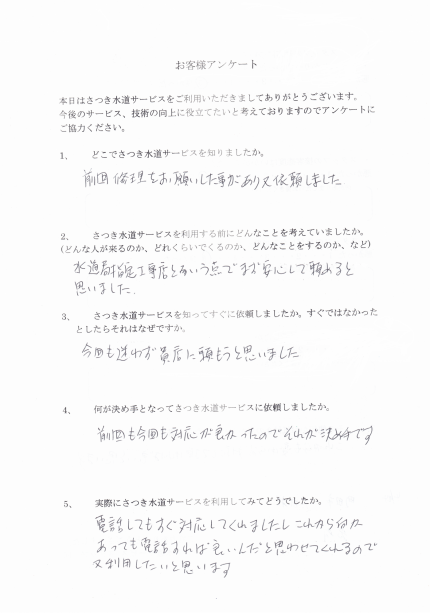 お客様アンケート
本日はさつき水道サービスをご利用いただきましてありがとうございます。
今後のサービス、技術の向上に役立てたいと考えておりますのでアンケートに
ご協力ください。
1、 どこでさつき水道サービスを知りましたか。
前回修理をお願いした事があり又依頼しました。
2、 さつき水道サービスを利用する前にどんなことを考えていましたか。
(どんな人が来るのか、どれくらいでくるのか、どんなことをするのか、など)
水道局指定工事店という点でまず安心して頼めると
思いました。
3、 さつき水道サービスを知ってすぐに依頼しましたか。すぐではなかった
としたらそれはなぜですか。
今回も迷わず貴店に頼もうと思いました
4、 何が決め手となってさつき水道サービスに依頼しましたか。
前回も今回も対応が良かったのでそれが決め手です
5、 実際にさつき水道サービスを利用してみてどうでしたか。
電話してもすぐ対応してくれましたし これから何か
あっても電話すれば良いんだと思わせてくれるので
又利用したいと思います